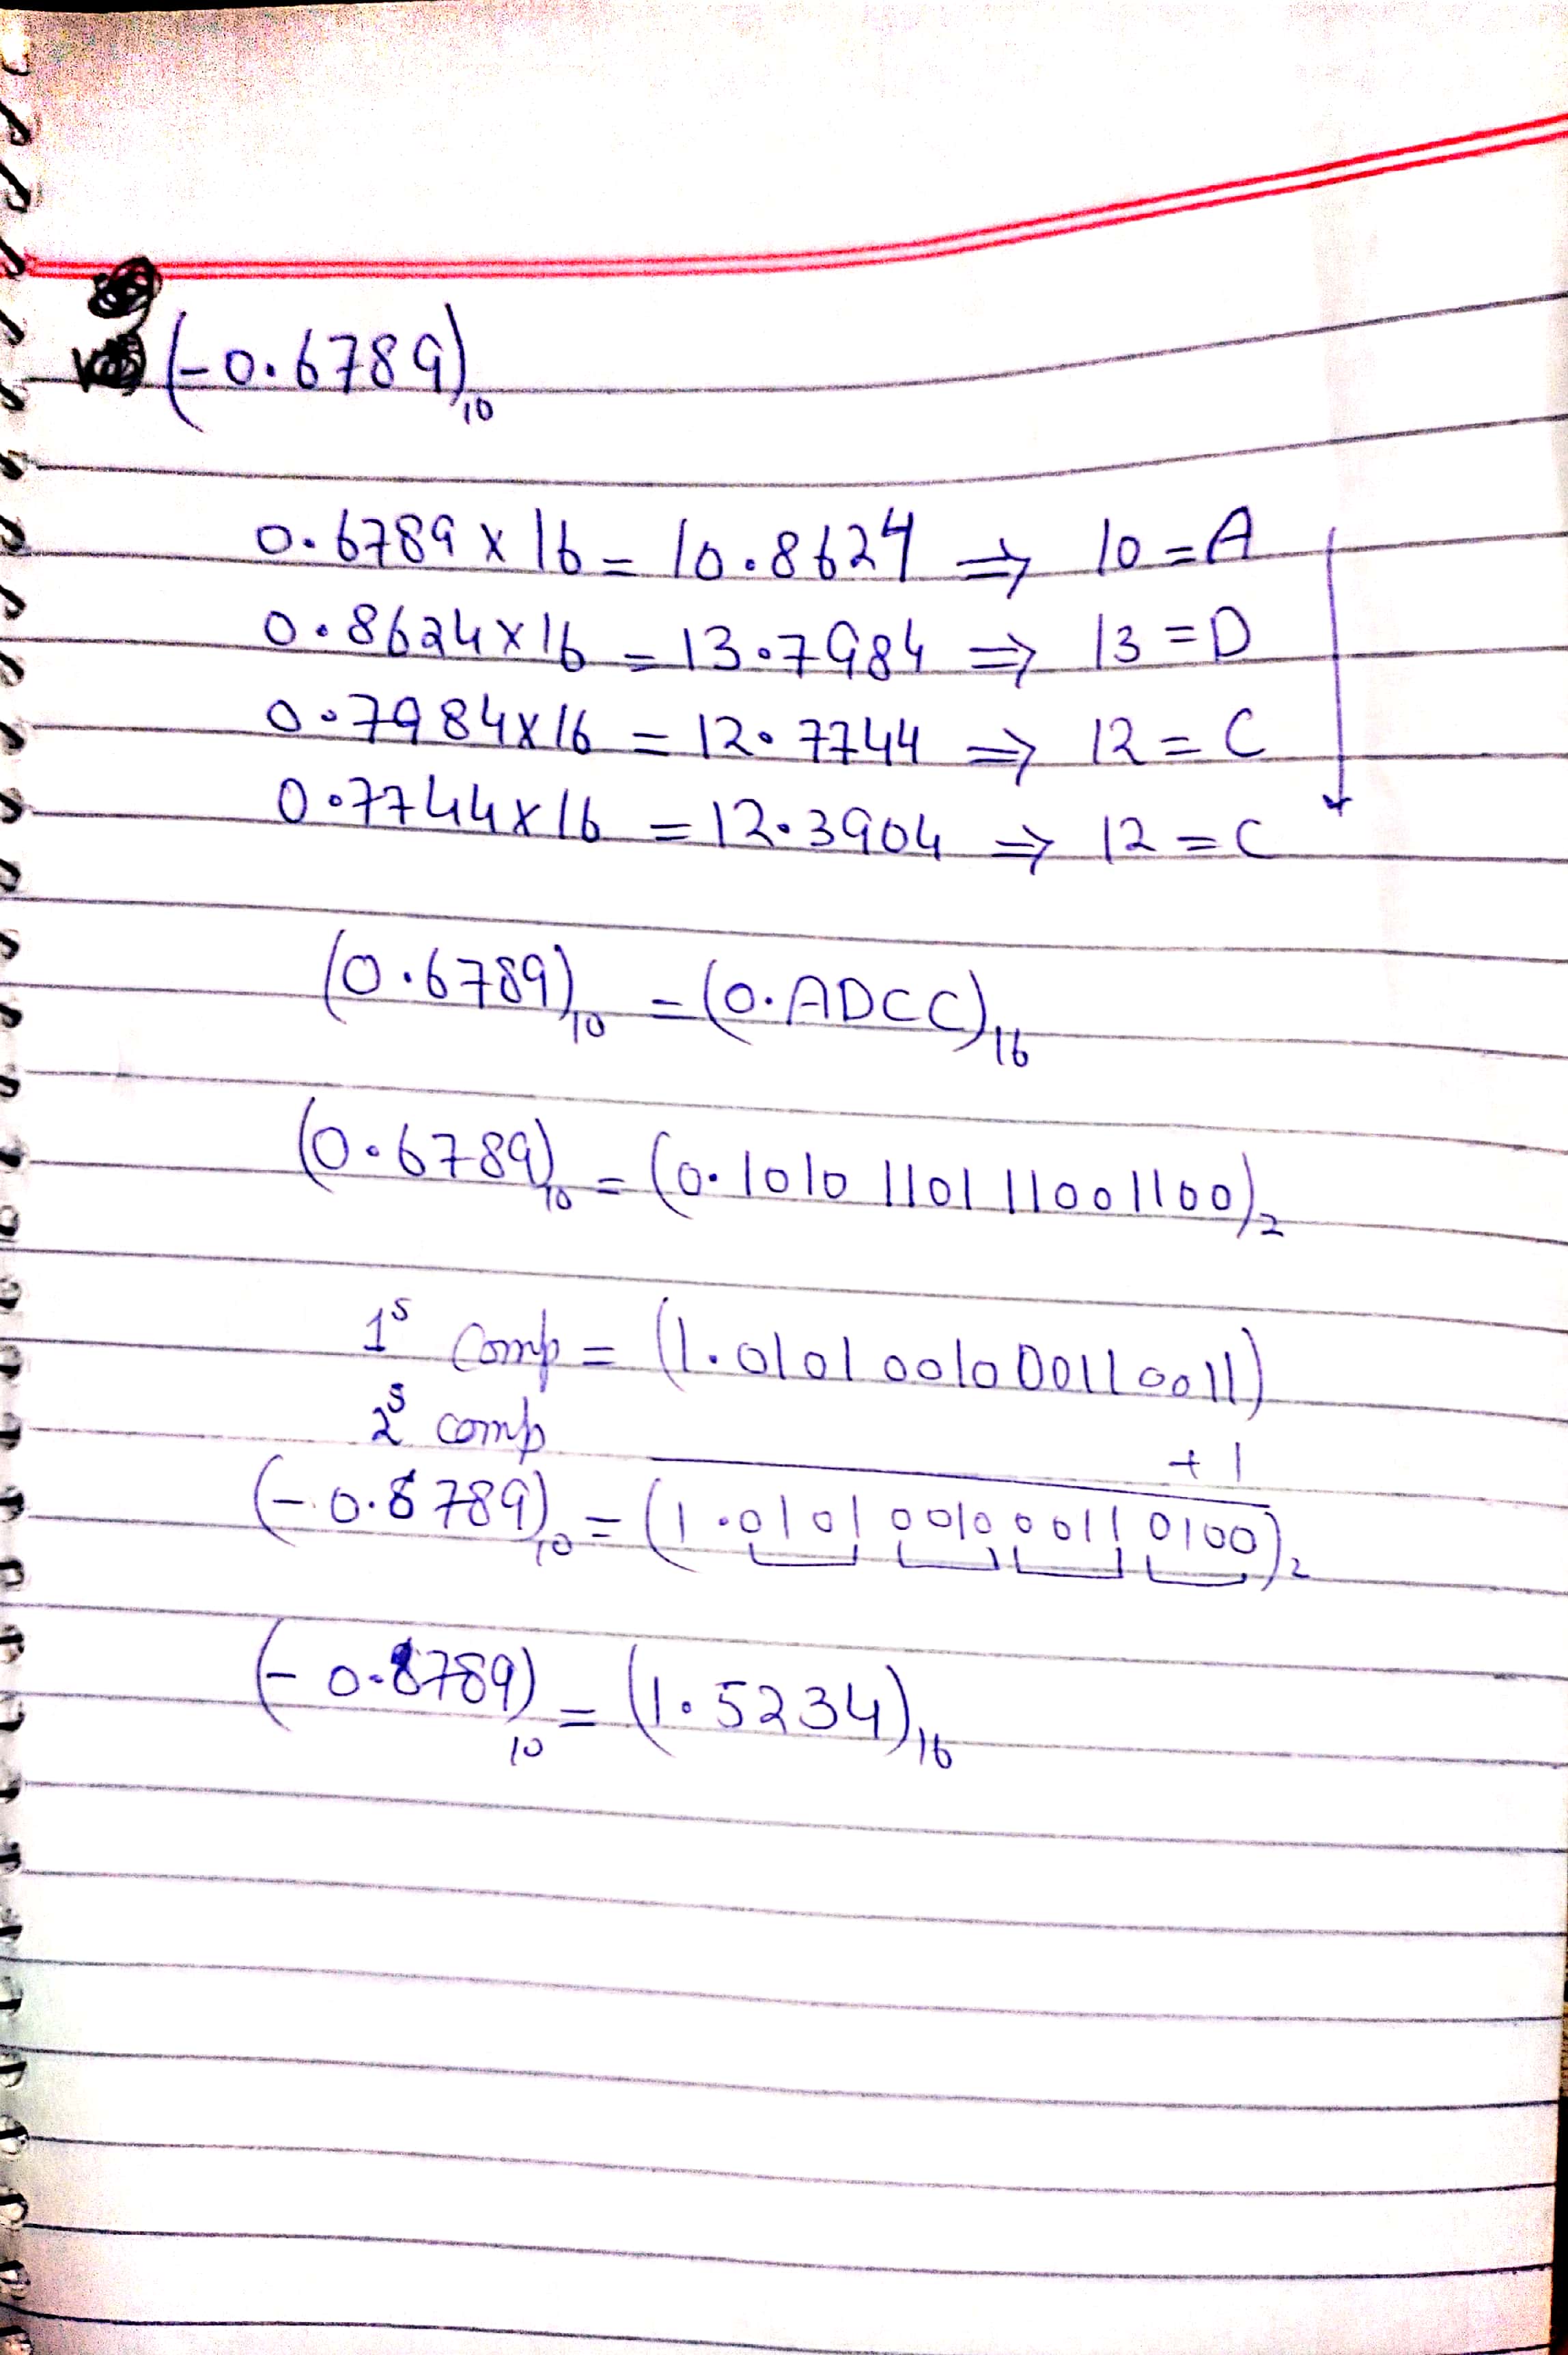 (-0.6789)₁₀
0.6789 x 16 = 10.8624 ⇒ 10 = A
0.8624 x 16 = 13.7984 ⇒ 13 = D
0.7984 x 16 = 12.7744 ⇒ 12 = C
0.7744 x 16 = 12.3904 ⇒ 12 = C
(0.6789)₁₀ = (0.ADCC)₁₆
(0.6789)₁₀ = (0.1010 1101 11001100)₂
1ˢ comp = (1.0101 0010 00110011)
2ˢ comp
+ 1
(-0.6789)₁₀ = (1.0101 0010 0011 0100)₂
(-0.6789)₁₀ = (1.5234)₁₆